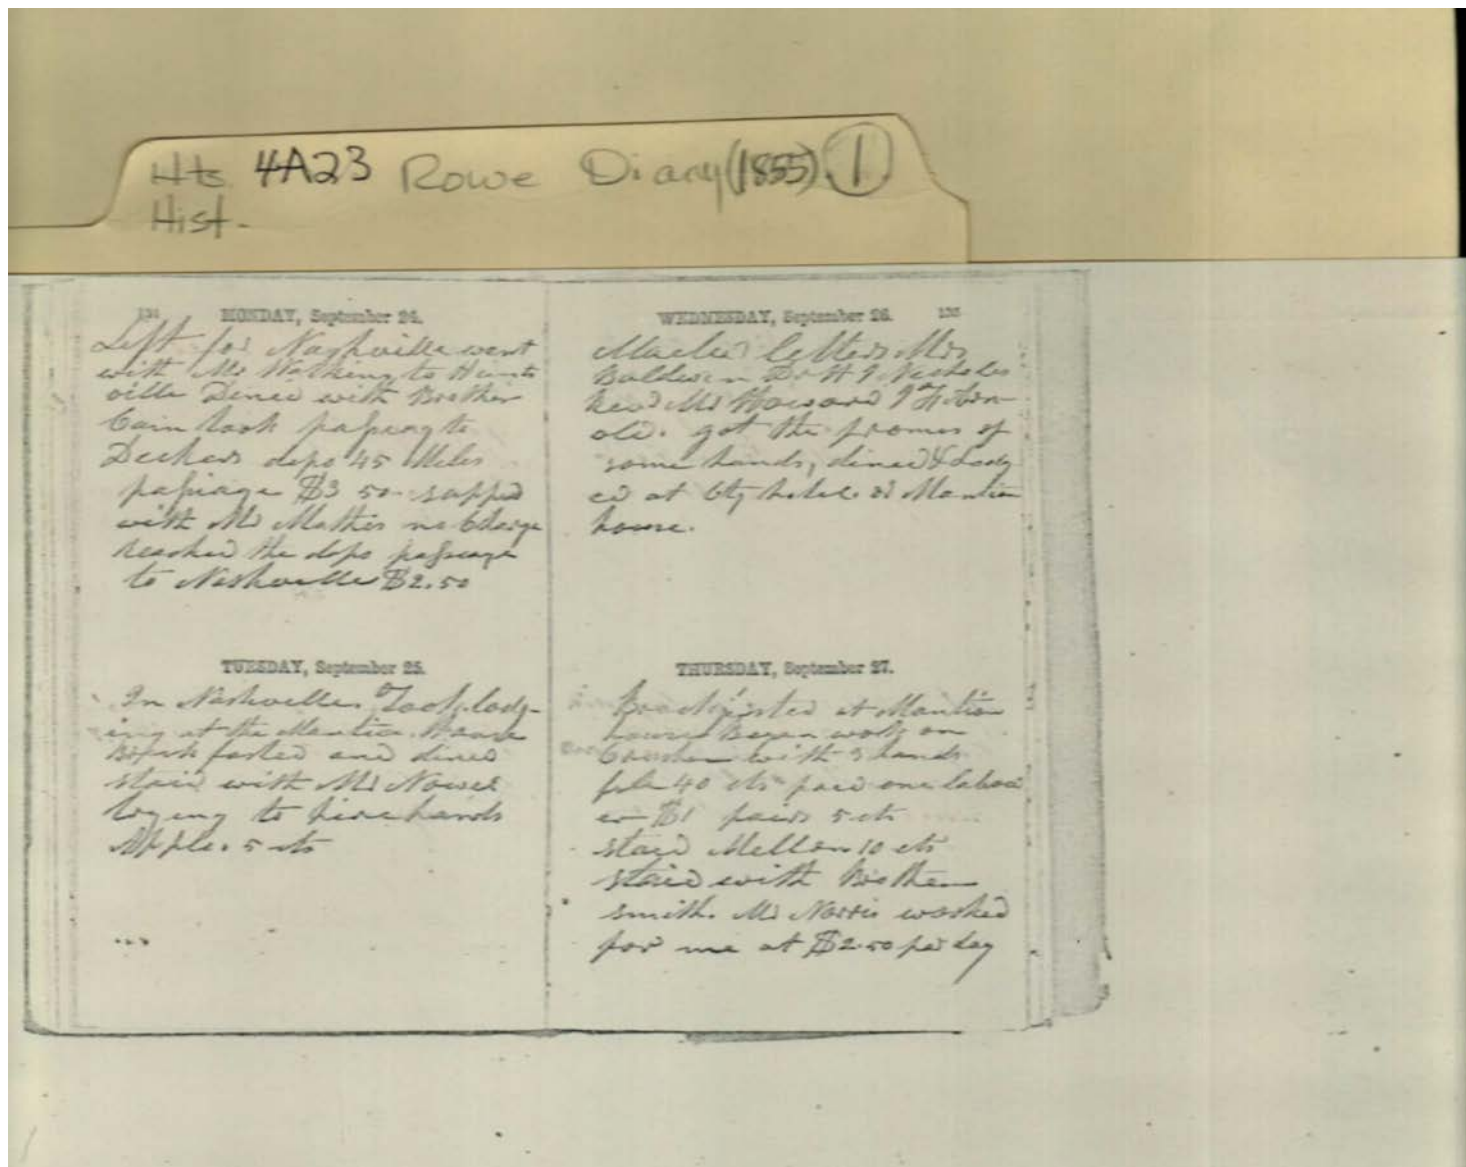 Hts 4A23 Rowe Diary (1855). 1
Hist.
134 MONDAY, September 24.
Left for Nashville went
with Mr Watkins to Hunts
ville Dined with Brother
Cain took passag to
Deckers depo 45 Miles
passage $3 50 supped
with Mr Mathis no Charge
reached the depo passage
to Nashville $2.50
TUESDAY, September 25.
In Nashville. Took lodg-
ing at the House
Breakfasted and dined
staid with Mr
trying to hire hands
Apple. 5 cts
WEDNESDAY, September 26. 135
Letters Mrs
Baldwin Dr H Nicholes
Revd Mr Howard
got the promes of
some hands, dined & Lodg
ed at hotel
house.
THURSDAY, September 27.
at
house Began work on
with 3 hands
40 cts paid one labour
er $1 5 cts
staid Mellon 10 cts
staid with Brother
smith. Mr Norris worked
for me at $2.50 per day